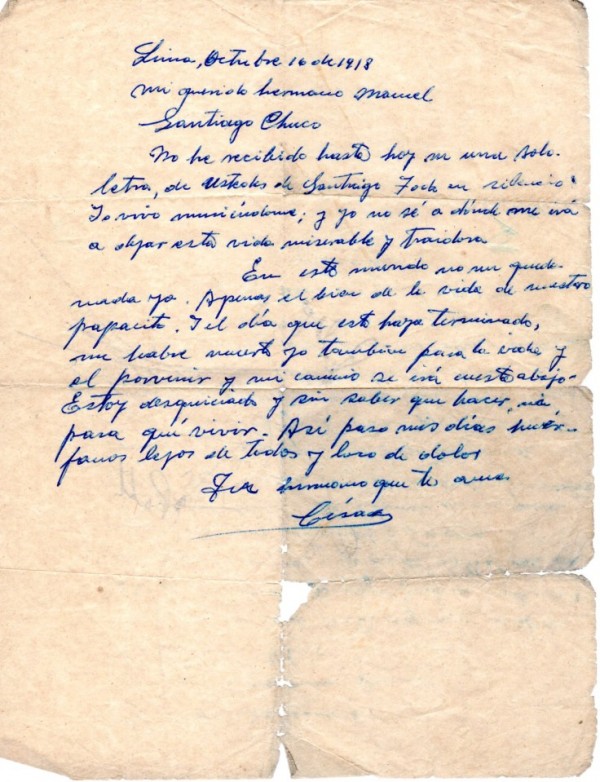 Lima, Octubre 16 de 1918
Mi querido hermano Manuel
Santiago Chuco
No he recibido hasta hoy ni una sola
letra, de Ustedes de Santiago Todo en silencio
Yo vivo muriéndome; y yo no sé a dónde me irá
a dejar esta vida miserable y traidora
En este mundo no me queda
nada ya. Apenas el bien de la vida de nuestro
papacito. Y el día que esto haya terminado,
me habré muerto yo también para la vida y
el porvenir y mi camino se irá cuesta abajo.
Estoy desquiciado y sin saber que hacer, ni
para qué vivir. Así paso mis días huér-
fanos lejos de todos y loco de dolor
hermano que te ama
César